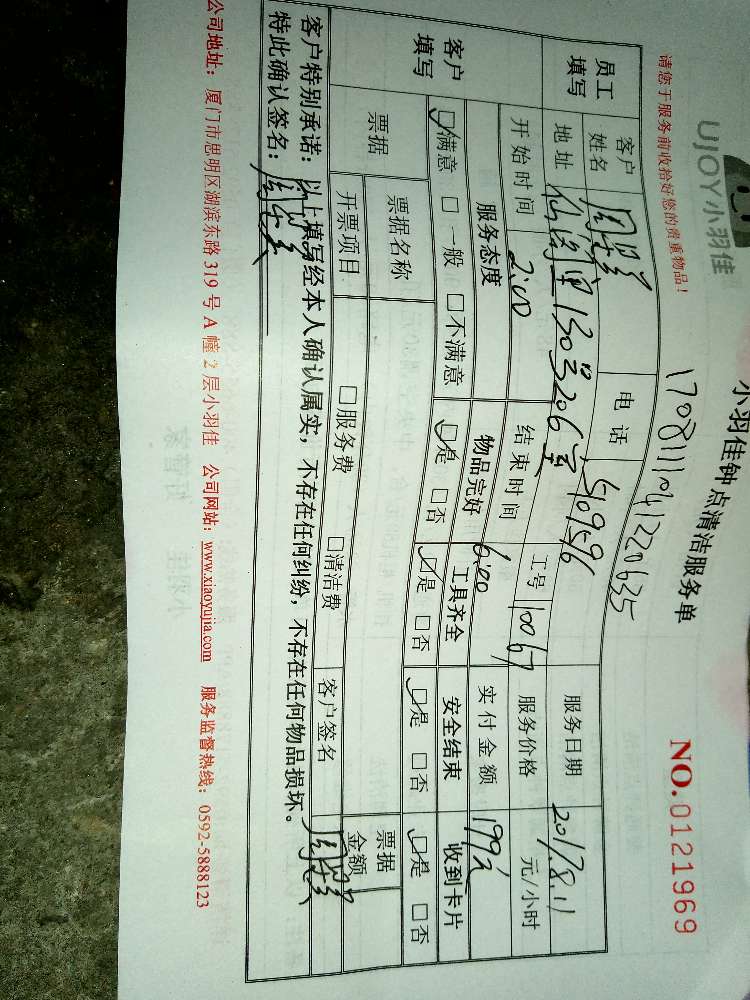 UJOY小羽佳
小羽佳钟点清洁服务单
NO.0121969
请您于服务前收拾好您的贵重物品！
1708111041220635
员工填写
客户姓名
电话
服务日期 2017.8.11
地址
工号 10067
服务价格 元/小时
开始时间 2:00
结束时间 6:00
实付金额 199元
客户填写
服务态度 物品完好 工具齐全 安全结束 收到卡片
☑满意 □一般 □不满意 ☑是 □否 ☑是 □否 ☑是 □否 ☑是 □否
票据
票据名称
票据金额
开票项目 □服务费 □清洁费 客户签名
客户特别承诺：以上填写经本人确认属实，不存在任何纠纷，不存在任何物品损坏。
特此确认签名：
公司地址：厦门市思明区湖滨东路 319 号 A 幢 2 层小羽佳 公司网站：www.xiaoyujia.com 服务监督热线：0592-5888123